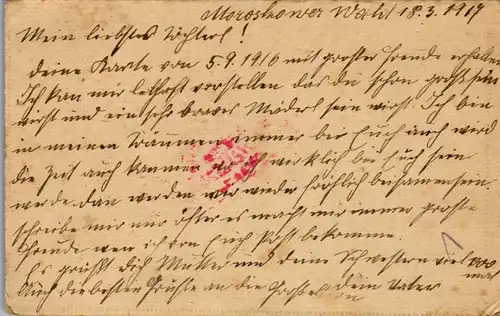 Moroskower Wald 18.3.1917
Mein liebstes Töchterl!
deine Karte von 5.9.1916 mit groster Freude erhalten
Ich kan mir lebhaft vorstellen das du schon groß sein
wirst und ein sehr braves Mäderl sein wirst. Ich bin
in meinen Träumen immer bei Euch auch wird
die Zeit auch kommen wo ich wirklich bei Euch sein
werde. dan werden wir wieder fröhlich beisamen sein,
schreibe mir nur öfter es macht mir immer groste
Freude wen ich von Euch Post bekomme
Es grüßt dich Mutter und deine Schwestern viel 1000
mal
Auch die besten Grüße an die Großel dein Vater